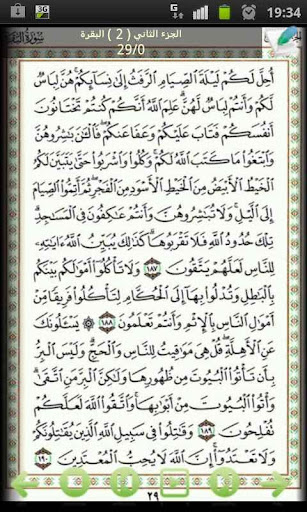 19:34
الجزء الثاني ( 2 ) البقرة
29/0
أُحِلَّ لَكُمْ لَيْلَةَ ٱلصِّيَامِ ٱلرَّفَثُ إِلَىٰ نِسَآئِكُمْ ۚ هُنَّ لِبَاسٌ
لَّكُمْ وَأَنتُمْ لِبَاسٌ لَّهُنَّ ۗ عَلِمَ ٱللَّهُ أَنَّكُمْ كُنتُمْ تَخْتَانُونَ
أَنفُسَكُمْ فَتَابَ عَلَيْكُمْ وَعَفَا عَنكُمْ ۖ فَٱلْـَٰٔنَ بَـٰشِرُوهُنَّ
وَٱبْتَغُوا۟ مَا كَتَبَ ٱللَّهُ لَكُمْ ۚ وَكُلُوا۟ وَٱشْرَبُوا۟ حَتَّىٰ يَتَبَيَّنَ لَكُمُ
ٱلْخَيْطُ ٱلْأَبْيَضُ مِنَ ٱلْخَيْطِ ٱلْأَسْوَدِ مِنَ ٱلْفَجْرِ ۖ ثُمَّ أَتِمُّوا۟ ٱلصِّيَامَ
إِلَى ٱلَّيْلِ ۚ وَلَا تُبَـٰشِرُوهُنَّ وَأَنتُمْ عَـٰكِفُونَ فِى ٱلْمَسَـٰجِدِ ۗ
تِلْكَ حُدُودُ ٱللَّهِ فَلَا تَقْرَبُوهَا ۗ كَذَٰلِكَ يُبَيِّنُ ٱللَّهُ ءَايَـٰتِهِۦ
لِلنَّاسِ لَعَلَّهُمْ يَتَّقُونَ ١٨٧ وَلَا تَأْكُلُوٓا۟ أَمْوَٰلَكُم بَيْنَكُم
بِٱلْبَـٰطِلِ وَتُدْلُوا۟ بِهَآ إِلَى ٱلْحُكَّامِ لِتَأْكُلُوا۟ فَرِيقًا مِّنْ
أَمْوَٰلِ ٱلنَّاسِ بِٱلْإِثْمِ وَأَنتُمْ تَعْلَمُونَ ١٨٨ ۞ يَسْـَٔلُونَكَ
عَنِ ٱلْأَهِلَّةِ ۖ قُلْ هِىَ مَوَٰقِيتُ لِلنَّاسِ وَٱلْحَجِّ ۗ وَلَيْسَ ٱلْبِرُّ
بِأَن تَأْتُوا۟ ٱلْبُيُوتَ مِن ظُهُورِهَا وَلَـٰكِنَّ ٱلْبِرَّ مَنِ ٱتَّقَىٰ ۗ
وَأْتُوا۟ ٱلْبُيُوتَ مِنْ أَبْوَٰبِهَا ۚ وَٱتَّقُوا۟ ٱللَّهَ لَعَلَّكُمْ
تُفْلِحُونَ ١٨٩ وَقَـٰتِلُوا۟ فِى سَبِيلِ ٱللَّهِ ٱلَّذِينَ يُقَـٰتِلُونَكُمْ
وَلَا تَعْتَدُوٓا۟ ۚ إِنَّ ٱللَّهَ لَا يُحِبُّ ٱلْمُعْتَدِينَ ١٩٠
٢٩